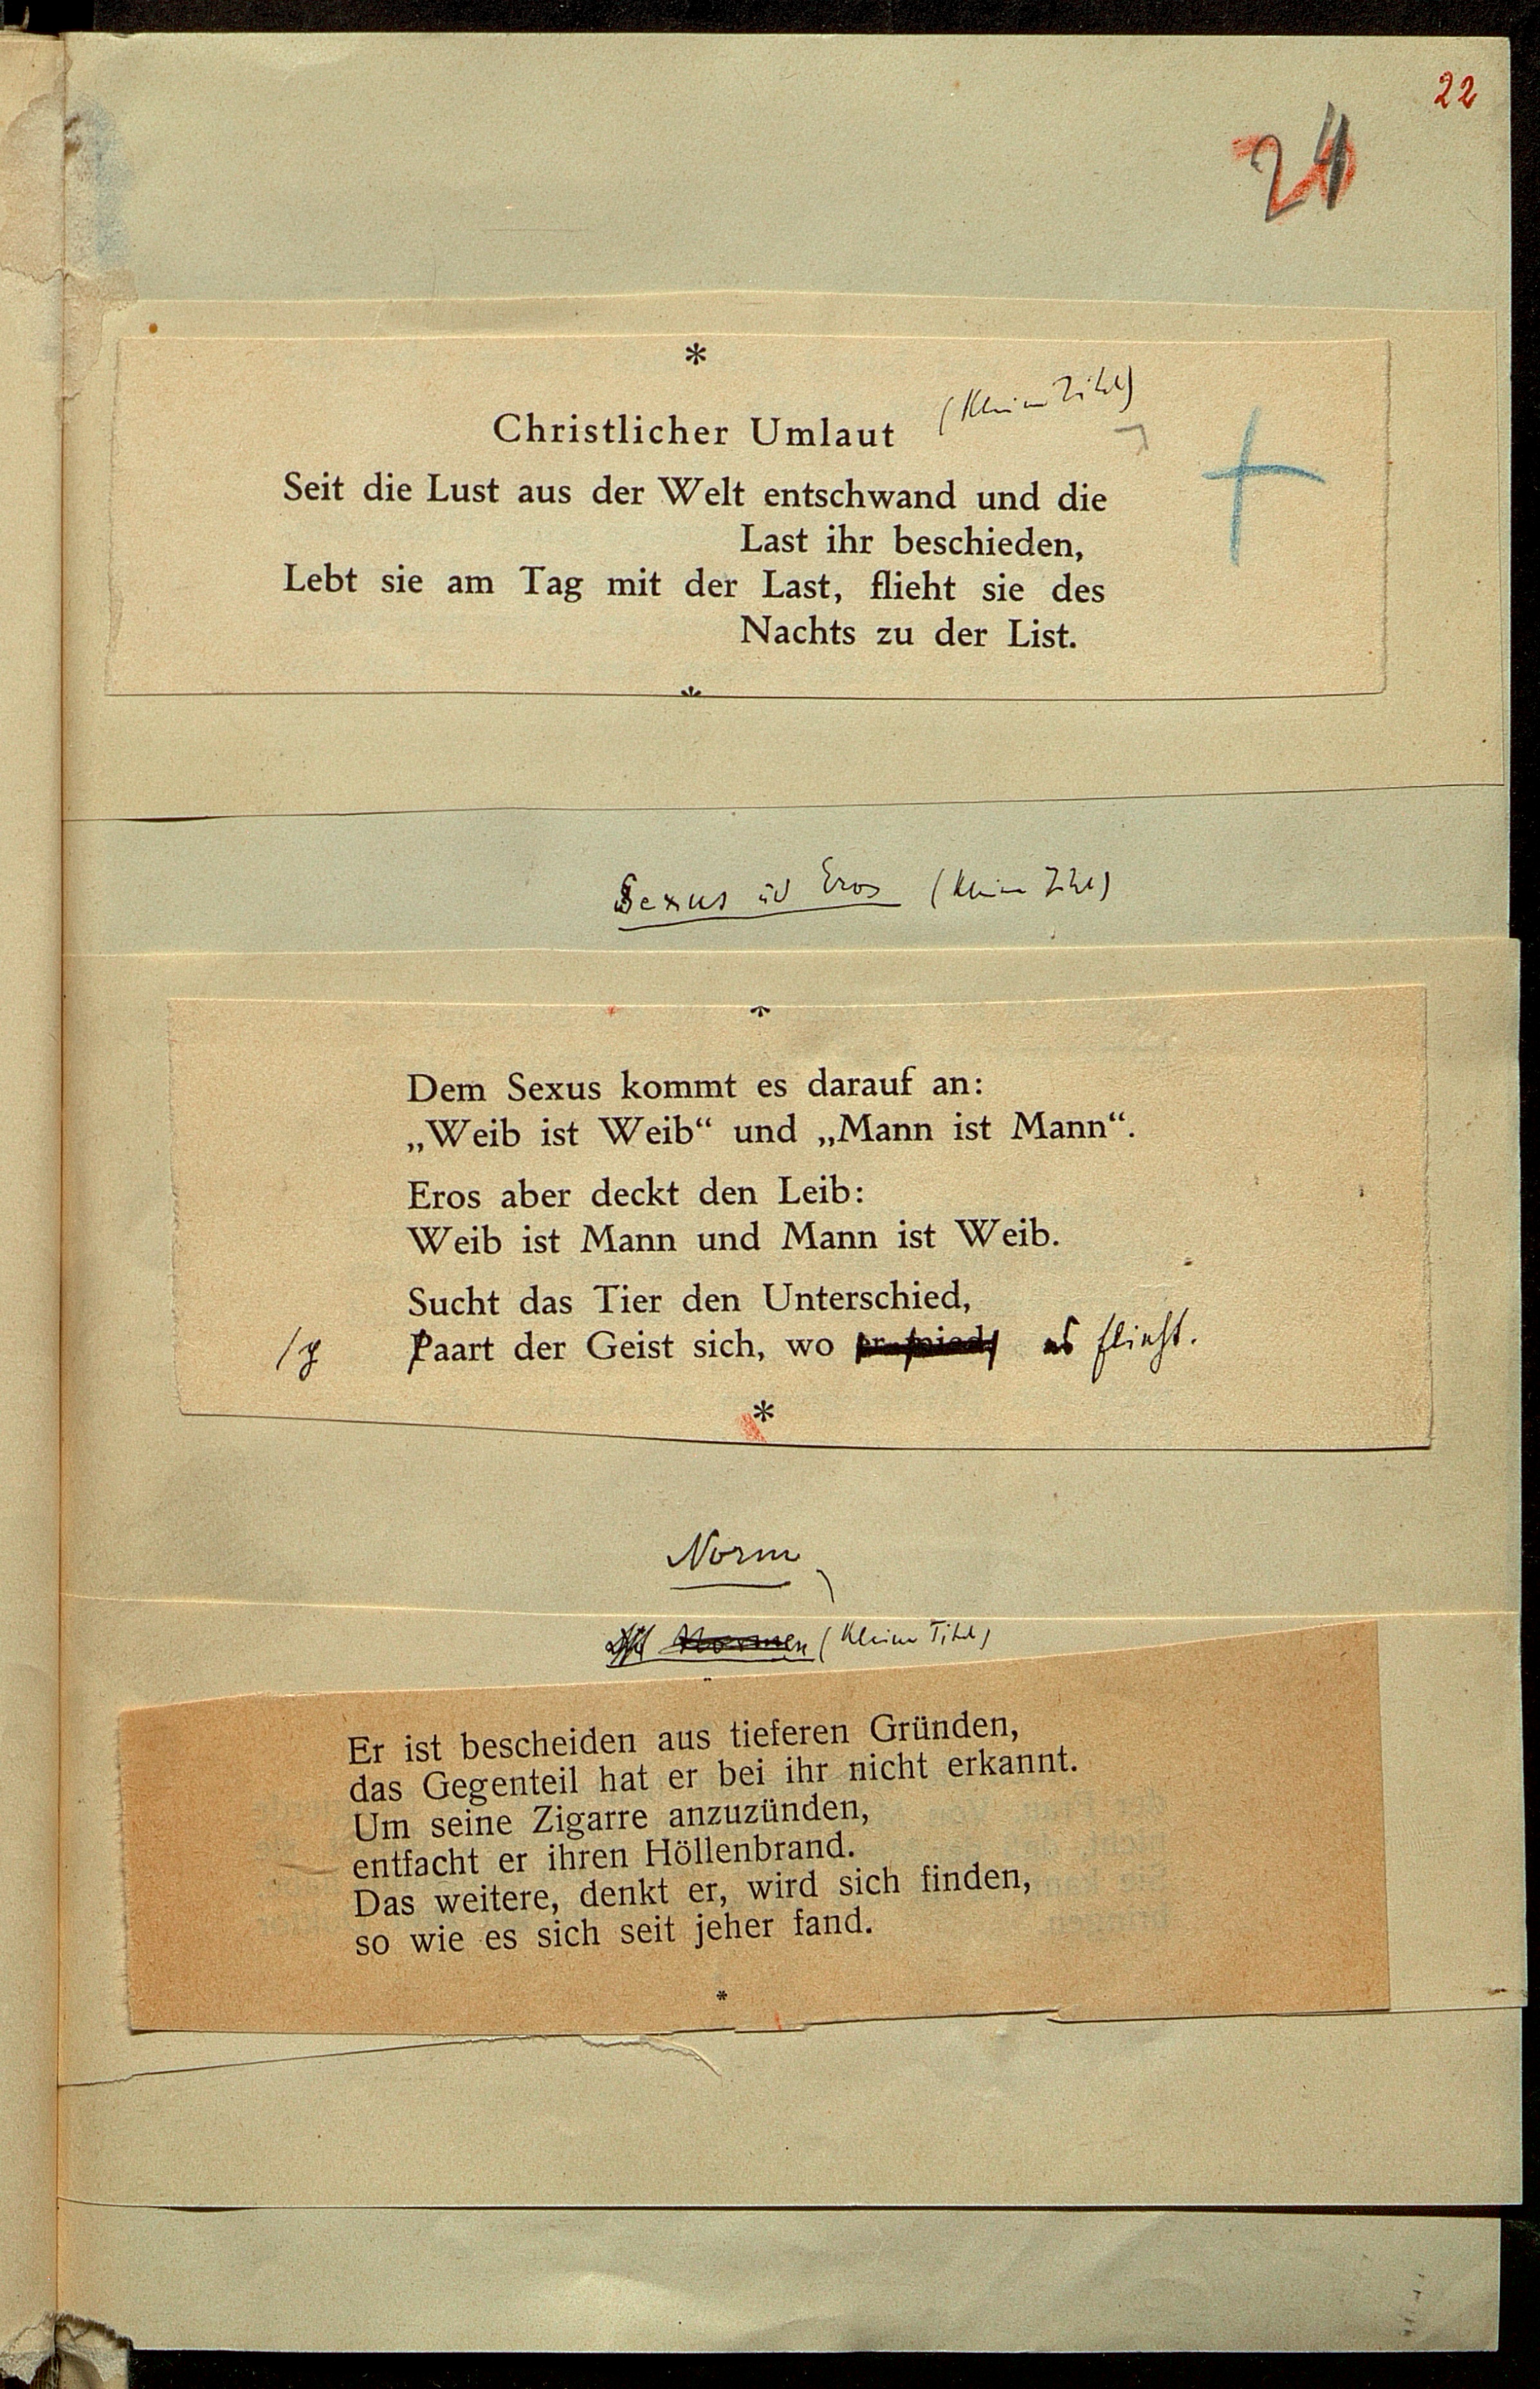 22
21
*
Christlicher Umlaut (Kleiner Titel)
Seit die Lust aus der Welt entschwand und die
Last ihr beschieden,
Lebt sie am Tag mit der Last, flieht sie des
Nachts zu der List.
*
Sexus ud Eros (Kleiner Titel)
*
Dem Sexus kommt es darauf an:
„Weib ist Weib“ und „Mann ist Mann“.
Eros aber deckt den Leib:
Weib ist Mann und Mann ist Weib.
Sucht das Tier den Unterschied,
/p Paart der Geist sich, wo er mied es flieht.
*
Norm
Normen (Kleiner Titel)
Er ist bescheiden aus tieferen Gründen,
das Gegenteil hat er bei ihr nicht erkannt.
Um seine Zigarre anzuzünden,
entfacht er ihren Höllenbrand.
Das weitere, denkt er, wird sich finden,
so wie es sich seit jeher fand.
*